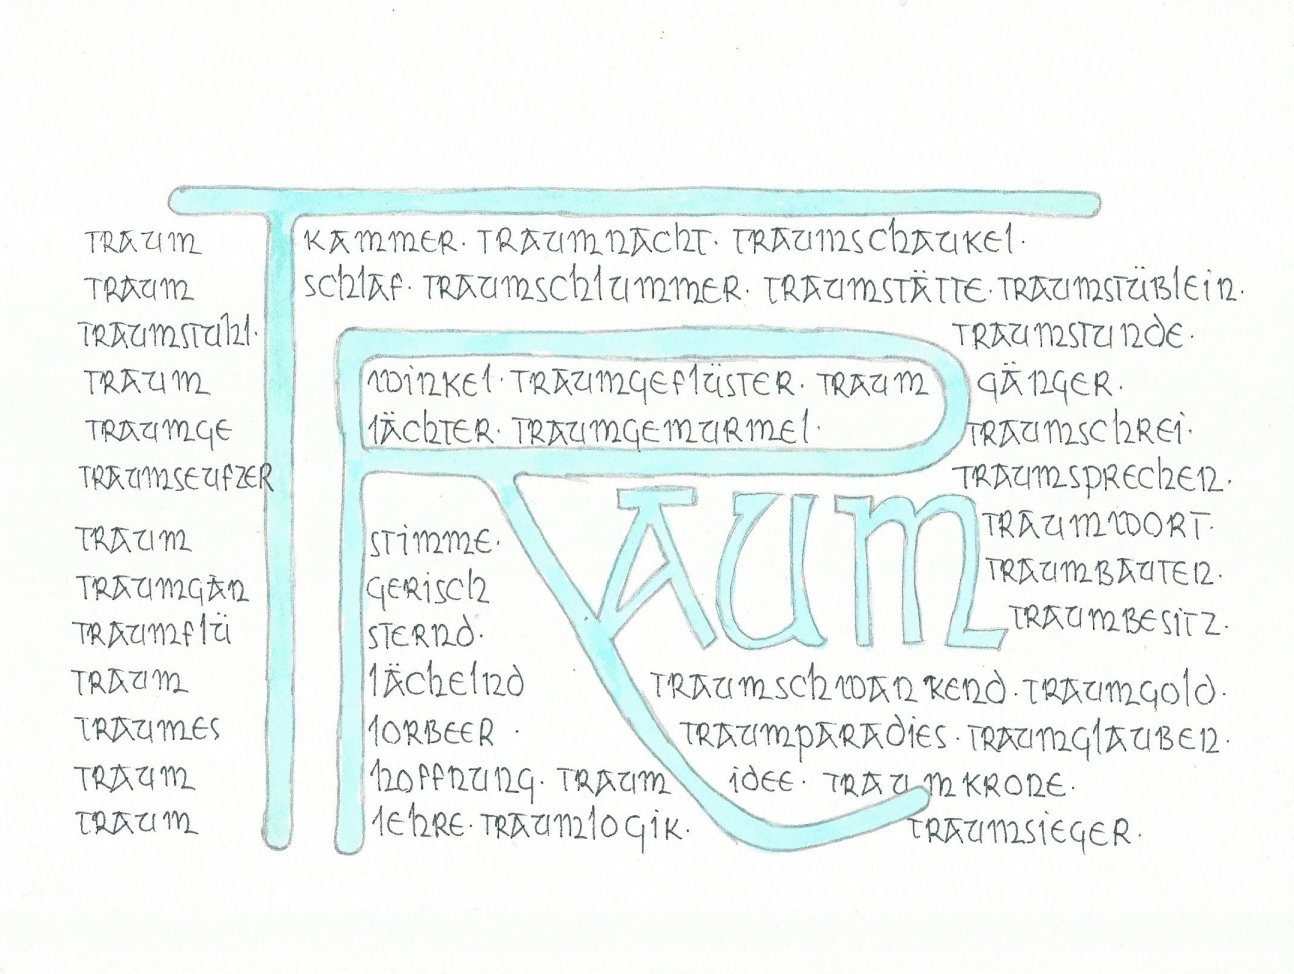 TRAUM
TRAUM KAMMER. TRAUMNACHT. TRAUMSCHAUKEL.
TRAUM SCHLAF. TRAUMSCHLUMMER. TRAUMSTÄTTE. TRAUMSTÜBLEIN.
TRAUMSTUHL. TRAUMSTUNDE.
TRAUM WINKEL. TRAUMGEFLÜSTER. TRAUM GÄNGER.
TRAUMGE LÄCHTER. TRAUMGEMURMEL. TRAUMSCHREI.
TRAUMSEUFZER TRAUMSPRECHEN.
TRAUM STIMME. TRAUMWORT.
TRAUMGÄN GERISCH TRAUMBAUTEN.
TRAUMFLÜ STERND. TRAUMBESITZ.
TRAUM LÄCHELND TRAUMSCHWANKEND. TRAUMGOLD.
TRAUMES LORBEER. TRAUMPARADIES. TRAUMGLAUBEN.
TRAUM HOFFNUNG. TRAUM IDEE. TRAUMKRONE.
TRAUM LEHRE. TRAUMLOGIK. TRAUMSIEGER.